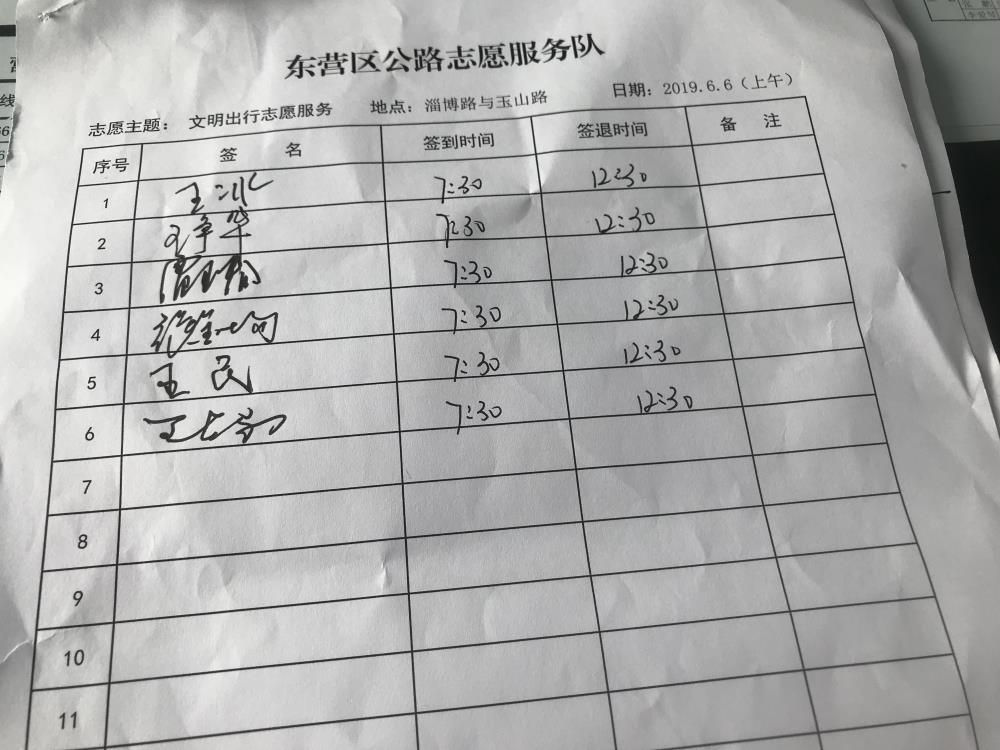 东营区公路志愿服务队
志愿主题： 文明出行志愿服务 地点：淄博路与玉山路 日期：2019.6.6（上午）
序号 签 名 签到时间 签退时间 备 注
1 王冰 7:30 12:30
2 王争华 7:30 12:30
3 7:30 12:30
4 7:30 12:30
5 王民 7:30 12:30
6 7:30 12:30
7
8
9
10
11